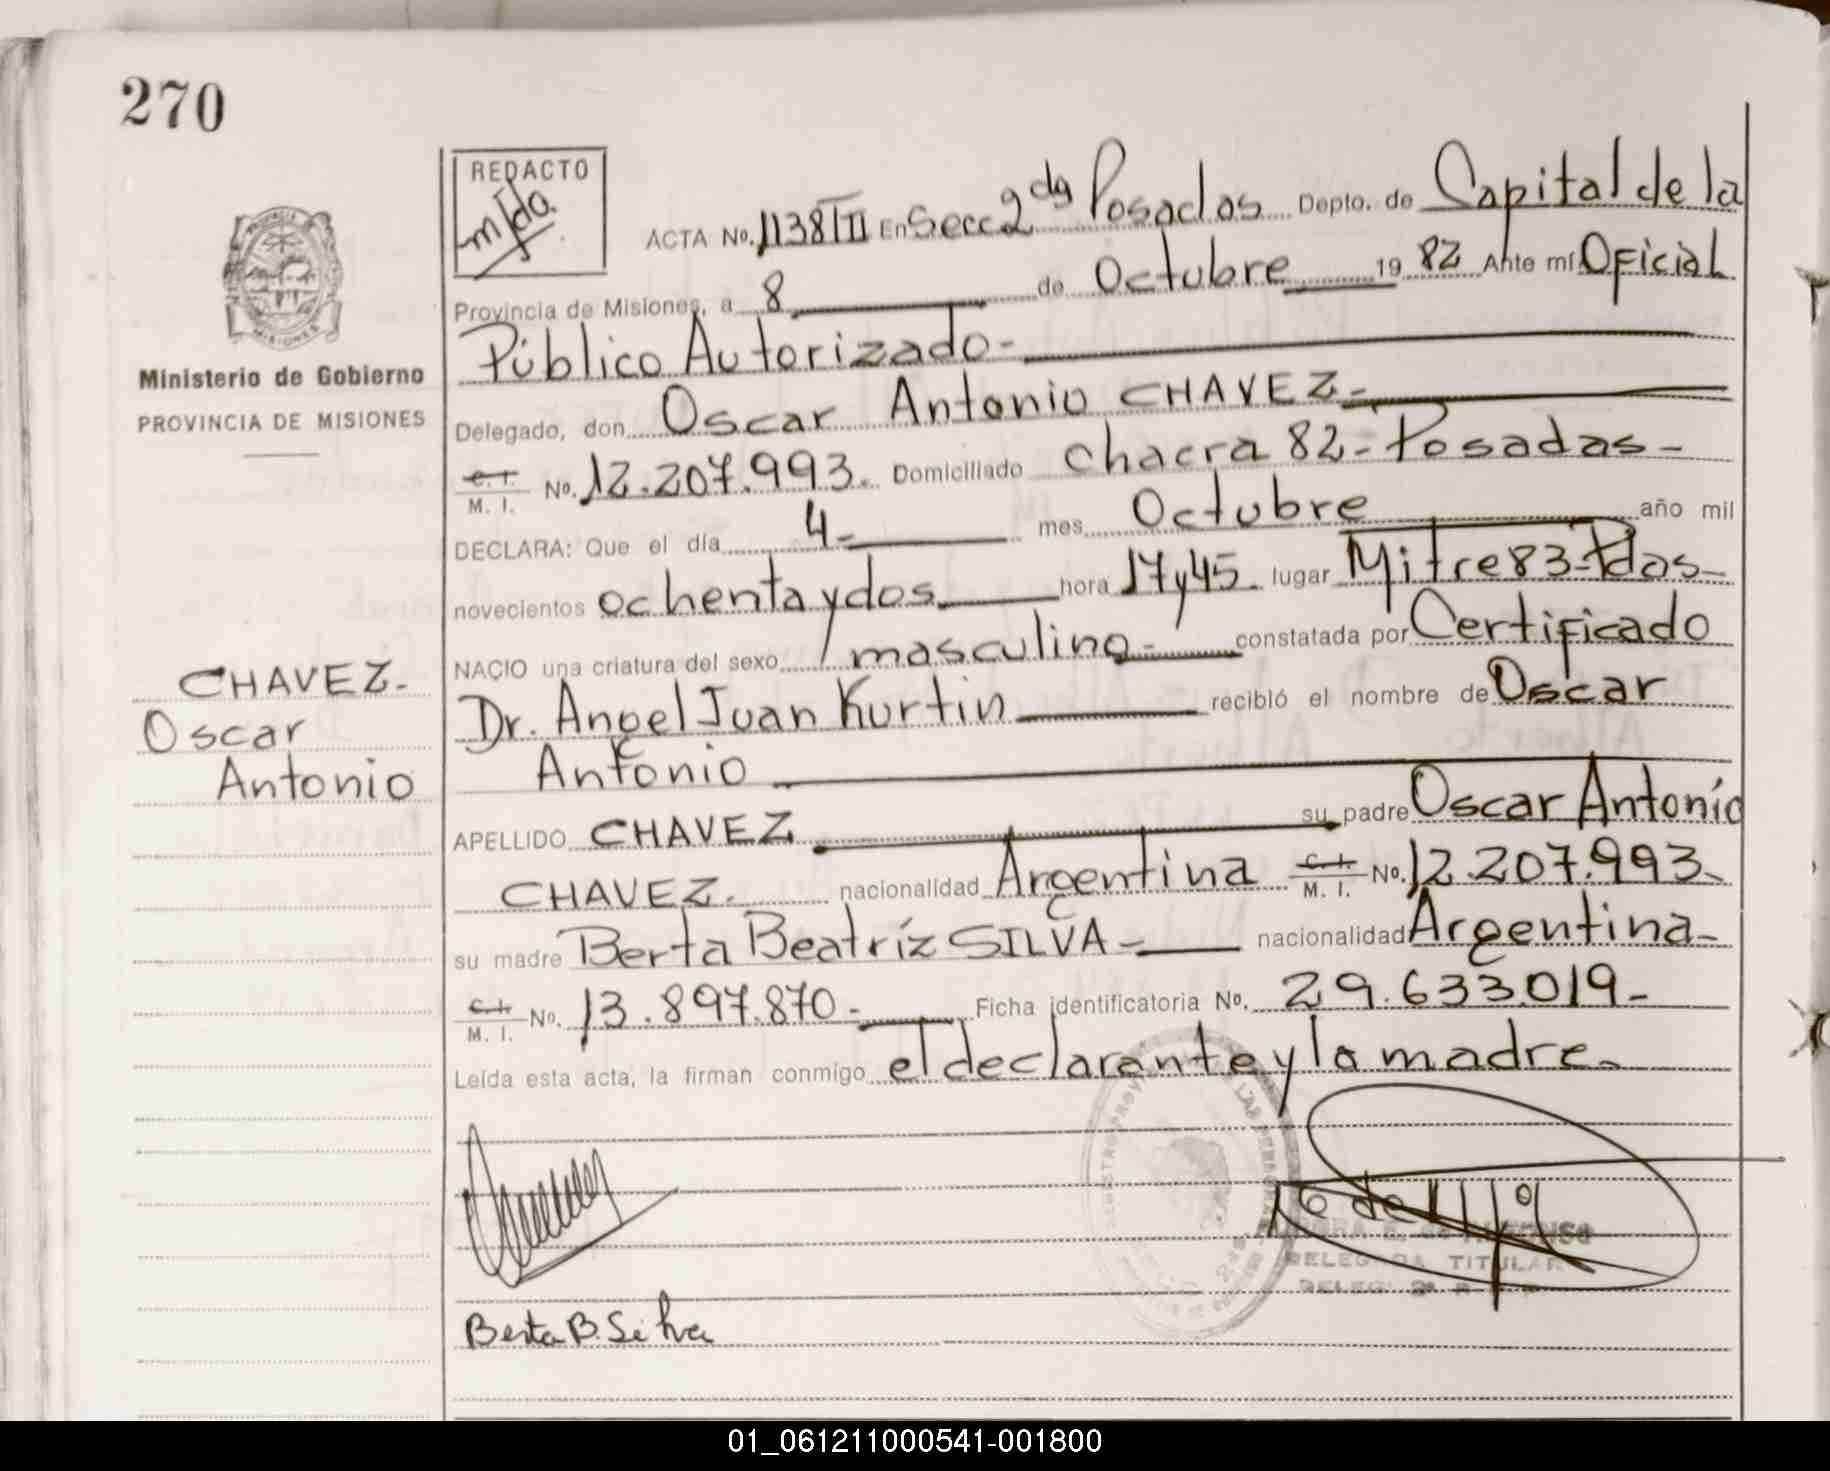 270
REDACTO
m/do.
ACTA No. 1138/III En Secc 2da Posadas Depto. de Capital de la
Provincia de Misiones, a 8 de Octubre 19 82 Ante mí Oficial
Público Autorizado-
Ministerio de Gobierno
PROVINCIA DE MISIONES
Delegado, don Oscar Antonio CHAVEZ-
C. I.
M. I. No. 12.207.993. Domiciliado chacra 82- Posadas-
DECLARA: Que el día 4- mes Octubre año mil
novecientos ochenta y dos hora 17 y 45. lugar Mitre 83-Pdas-
NACIO una criatura del sexo masculino- constatada por Certificado
Dr. Angel Juan Kurtin recibió el nombre de Oscar
Antonio
CHAVEZ-
Oscar
Antonio
APELLIDO CHAVEZ su padre Oscar Antonio
CHAVEZ. nacionalidad Argentina C. I.
M. I. No. 12.207.993-
su madre Berta Beatríz SILVA- nacionalidad Argentina-
C. I.
M. I. No. 13.897.870- Ficha identificatoria No. 29.633.019-
Leída esta acta, la firman conmigo el declarante y la madre-
DELEGADA TITULAR
Berta B. Silva
01_061211000541-001800